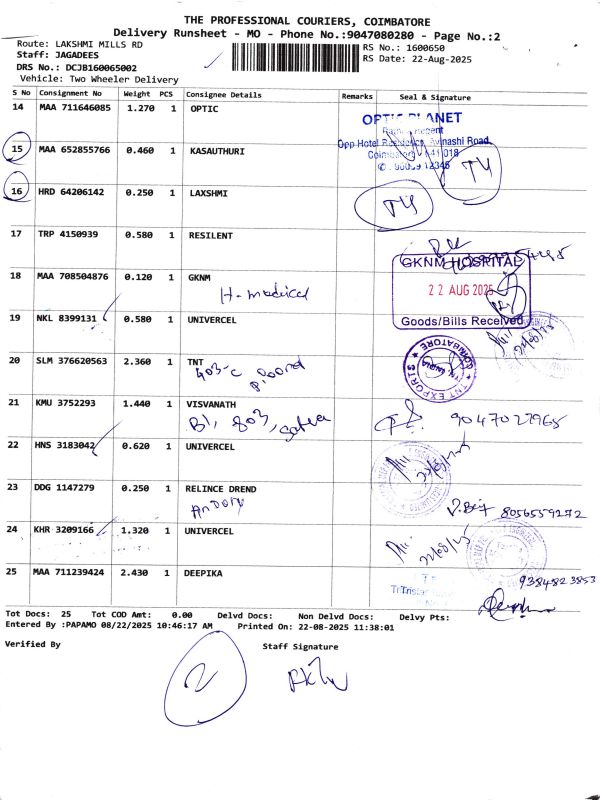 THE PROFESSIONAL COURIERS, COIMBATORE
Delivery Runsheet - MO - Phone No.:9047080280 - Page No.:2
Route: LAKSHMI MILLS RD
Staff: JAGADEES
DRS No.: DCJB160065002
Vehicle: Two Wheeler Delivery
RS No.: 1600650
RS Date: 22-Aug-2025
S No Consignment No Weight PCS Consignee Details Remarks Seal & Signature
14 MAA 711646085 1.270 1 OPTIC
OPTIC PLANET
Opp Hotel Residency, Avinashi Road
15 MAA 652855766 0.460 1 KASAUTHURI
TY
16 HRD 64206142 0.250 1 LAXSHMI
TY
17 TRP 4150939 0.580 1 RESILENT
18 MAA 708504876 0.120 1 GKNM
H. medical
GKNM HOSPITAL
22 AUG 2025
Goods/Bills Received
19 NKL 8399131 0.580 1 UNIVERCEL
20 SLM 376620563 2.360 1 TNT
403-C
TNT EXPORTS COIMBATORE
21 KMU 3752293 1.440 1 VISVANATH
B1, 803,
9047027965
22 HNS 3183042 0.620 1 UNIVERCEL
23 DDG 1147279 0.250 1 RELINCE DREND
8056559272
24 KHR 3209166 1.320 1 UNIVERCEL
22/08/25
25 MAA 711239424 2.430 1 DEEPIKA
9384823853
Tot Docs: 25 Tot COD Amt: 0.00 Delvd Docs: Non Delvd Docs: Delvy Pts:
Entered By :PAPAMO 08/22/2025 10:46:17 AM Printed On: 22-08-2025 11:38:01
Verified By
Staff Signature
2